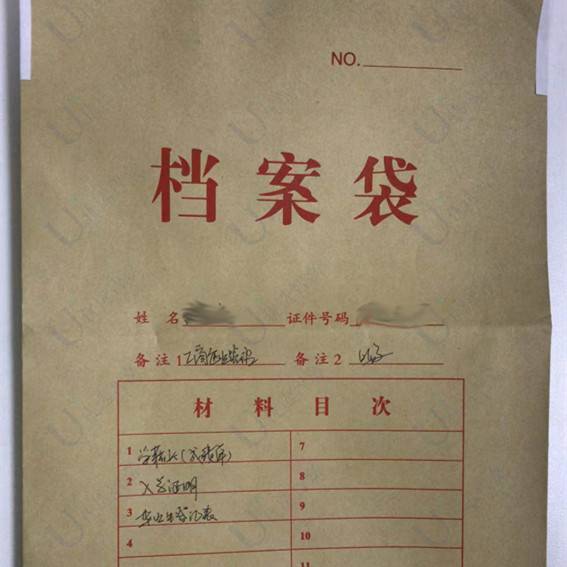 NO.
档案袋
姓名 证件号码
备注1 备注2
材料目次
1 学籍卡(成绩单) 7
2 入学证明 8
3 毕业生登记表 9
4 10
11